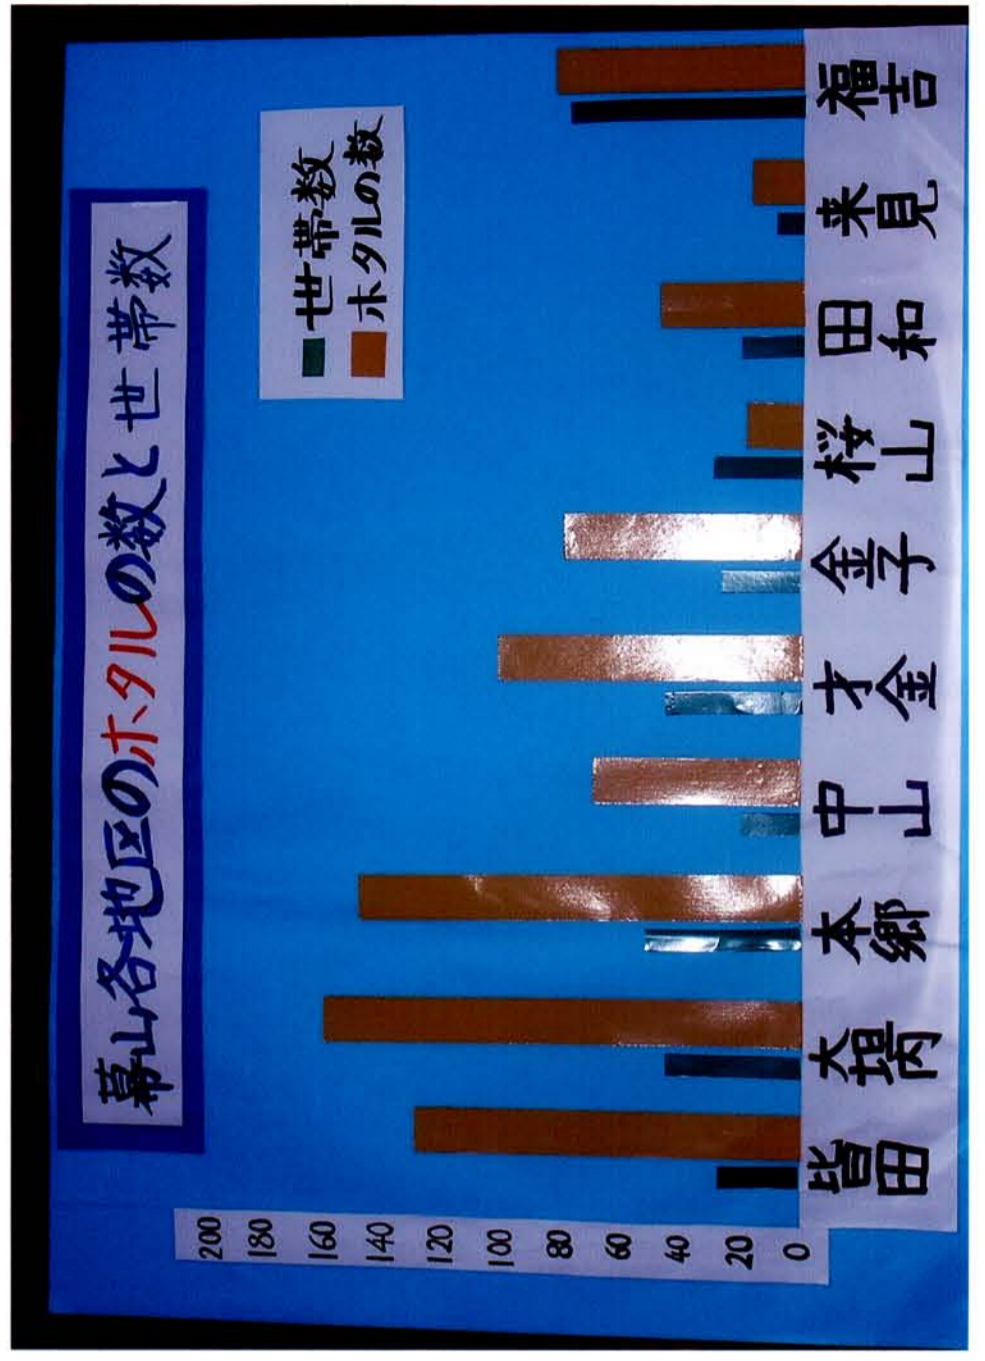 幕山各地区のホタルの数と世帯数
世帯数
ホタルの数
200
180
160
140
120
100
80
60
40
20
0
皆田
大垣内
本郷
中山
才金
金子
桜山
田和
来見
福吉